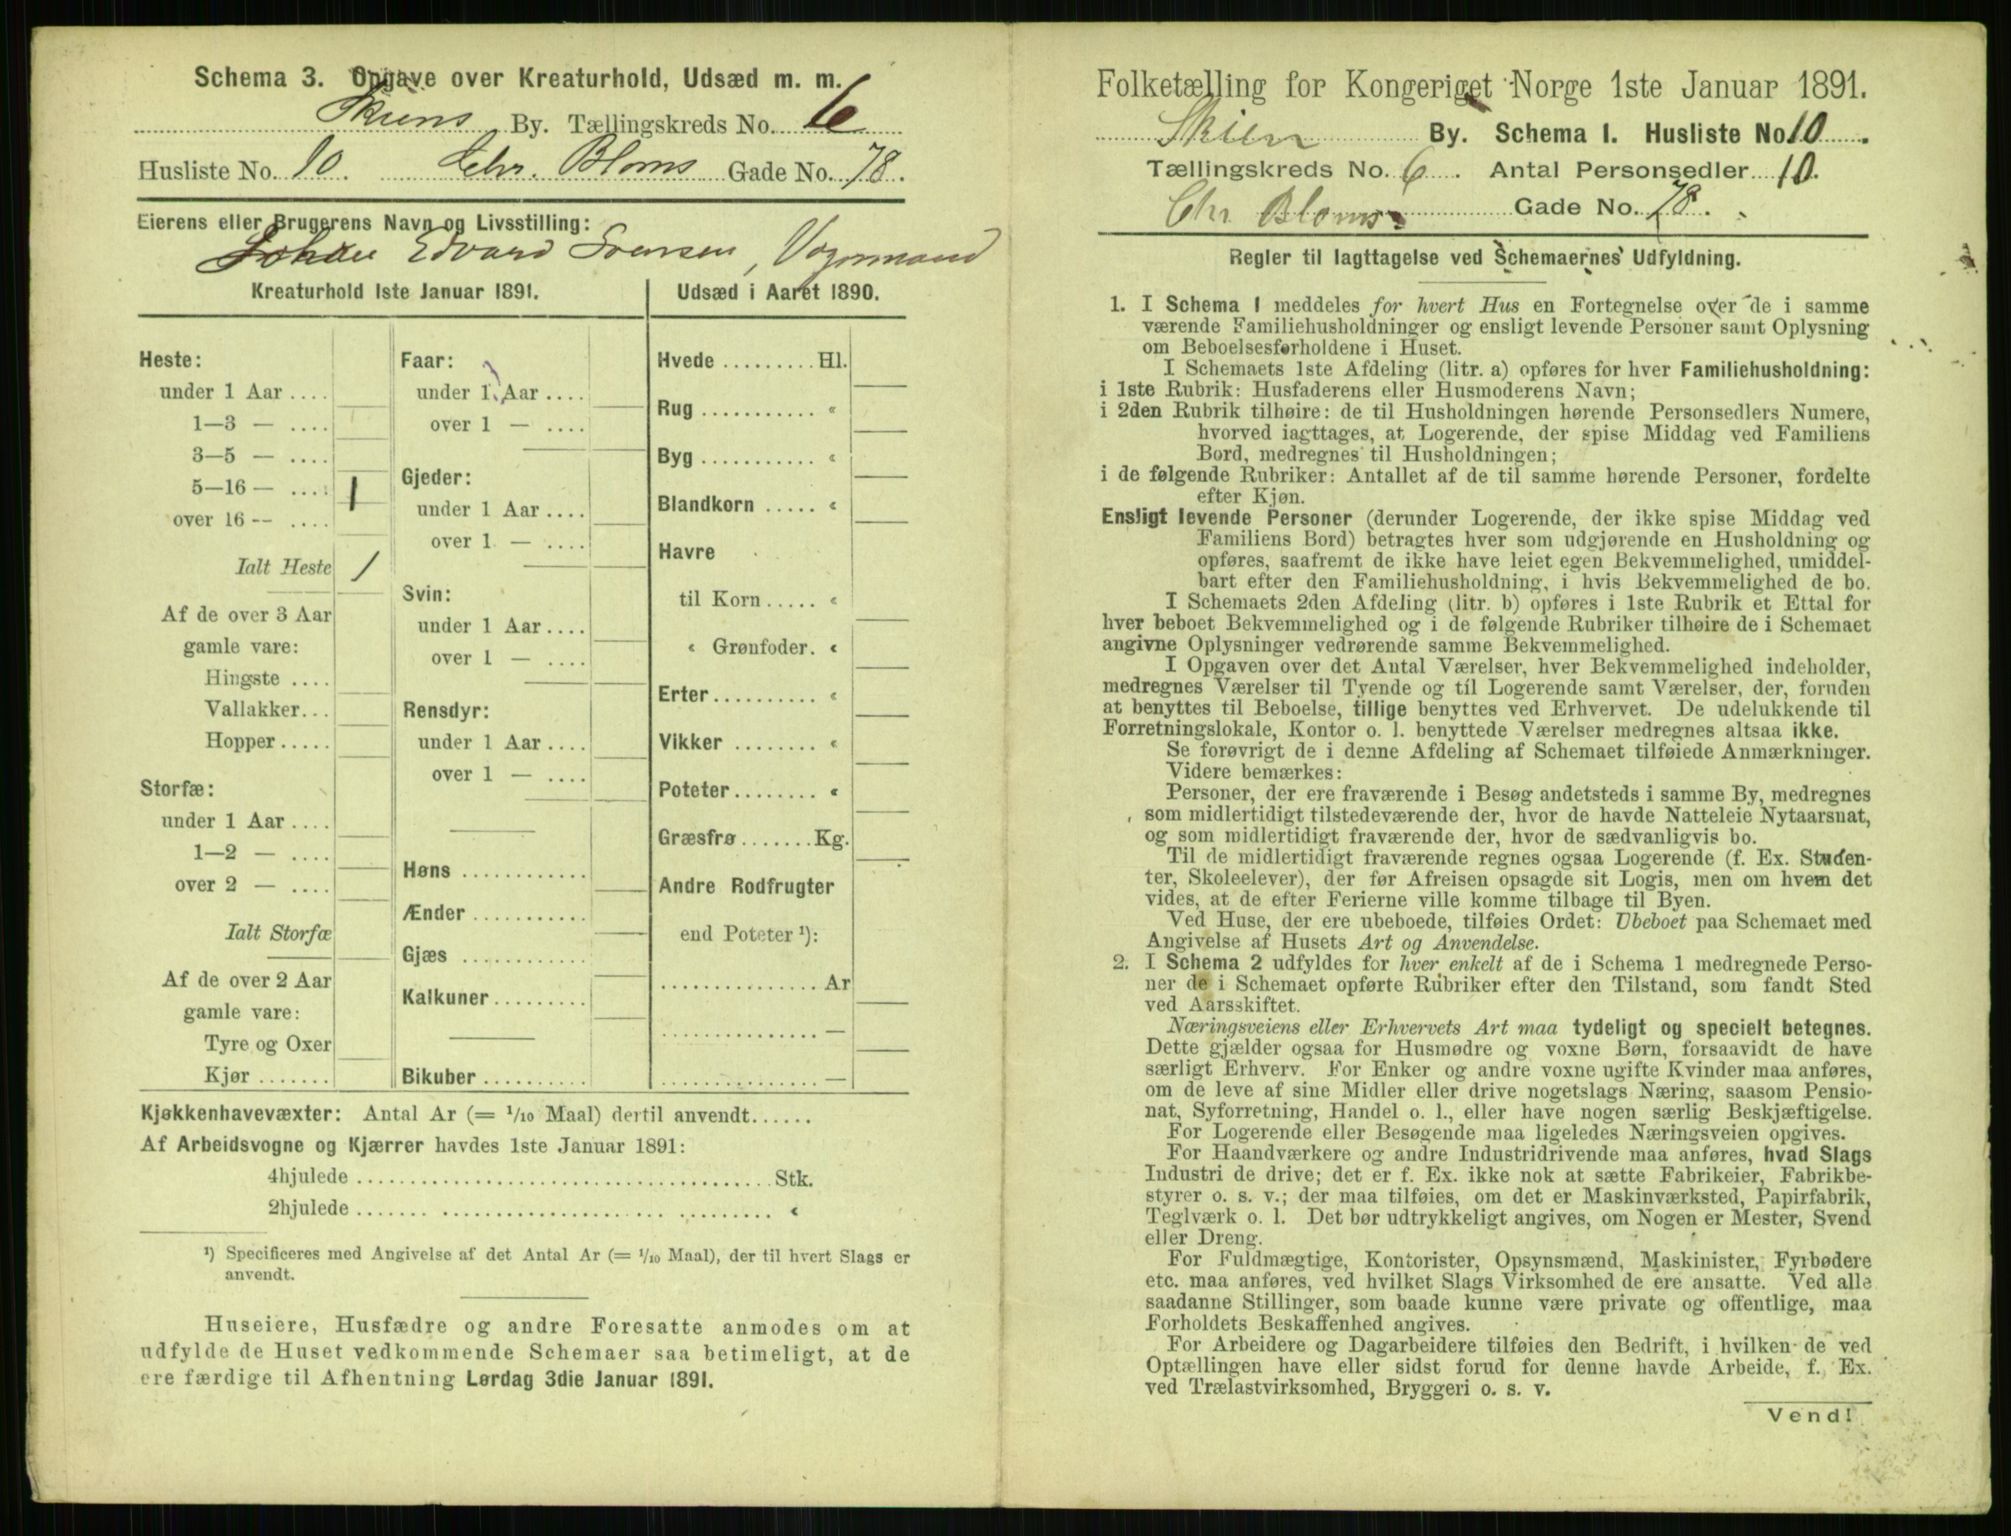 Schema 3. Opgave over Kreaturhold, Udsæd m. m.
Skiens By. Tællingskreds No. 6
Husliste No. 10. Chr. Bloms Gade No. 78.
Eierens eller Brugerens Navn og Livsstilling:
Johan Edvard Svensen, Vognmand
Kreaturhold 1ste Januar 1891.
Heste:
under 1 Aar ....
1—3 — ....
3—5 — ....
5—16 — .... 1
over 16 -- ....
Ialt Heste 1
Af de over 3 Aar
gamle vare:
Hingste ....
Vallakker...
Hopper.....
Storfæ:
under 1 Aar ....
1—2 — ....
over 2 — ....
Ialt Storfæ
Af de over 2 Aar
gamle vare:
Tyre og Oxer
Kjør .......
Faar:
under 1 Aar ....
over 1 — ....
Gjeder:
under 1 Aar ....
over 1 — ....
Svin:
under 1 Aar ....
over 1 — ....
Rensdyr:
under 1 Aar ....
over 1 — ....
Høns ............
Ænder ...........
Gjæs ............
Kalkuner.........
Bikuber ..........
Udsæd i Aaret 1890.
Hvede ......... Hl.
Rug ........... «
Byg ........... «
Blandkorn ..... «
Havre
til Korn ..... «
« Grønfoder. «
Erter.......... «
Vikker ........ «
Poteter........ «
Græsfrø .......Kg.
Andre Rodfrugter
end Poteter ¹):
............... Ar
............... —
............... —
Kjøkkenhavevæxter: Antal Ar (= 1/10 Maal) dertil anvendt......
Af Arbeidsvogne og Kjærrer havdes 1ste Januar 1891:
4hjulede ....................................... Stk.
2hjulede ....................................... «
¹) Specificeres med Angivelse af det Antal Ar (= 1/10 Maal), der til hvert Slags er
anvendt.
Huseiere, Husfædre og andre Foresatte anmodes om at
udfylde de Huset vedkommende Schemaer saa betimeligt, at de
ere færdige til Afhentning Lørdag 3die Januar 1891.
Folketælling for Kongeriget Norge 1ste Januar 1891.
Skien By. Schema I. Husliste No 10.
Tællingskreds No. 6. Antal Personsedler 10.
Chr Bloms Gade No. 78.
Regler til Iagttagelse ved Schemaernes Udfyldning.
1. I Schema 1 meddeles for hvert Hus en Fortegnelse over de i samme
værende Familiehusholdninger og ensligt levende Personer samt Oplysning
om Beboelsesforholdene i Huset.
I Schemaets 1ste Afdeling (litr. a) opføres for hver Familiehusholdning:
i 1ste Rubrik: Husfaderens eller Husmoderens Navn;
i 2den Rubrik tilhøire: de til Husholdningen hørende Personsedlers Numere,
hvorved iagttages, at Logerende, der spise Middag ved Familiens
Bord, medregnes til Husholdningen;
i de følgende Rubriker: Antallet af de til samme hørende Personer, fordelte
efter Kjøn.
Ensligt levende Personer (derunder Logerende, der ikke spise Middag ved
Familiens Bord) betragtes hver som udgjørende en Husholdning og
opføres, saafremt de ikke have leiet egen Bekvemmelighed, umiddel-
bart efter den Familiehusholdning, i hvis Bekvemmelighed de bo.
I Schemaets 2den Afdeling (litr. b) opføres i 1ste Rubrik et Ettal for
hver beboet Bekvemmelighed og i de følgende Rubriker tilhøire de i Schemaet
angivne Oplysninger vedrørende samme Bekvemmelighed.
I Opgaven over det Antal Værelser, hver Bekvemmelighed indeholder,
medregnes Værelser til Tyende og til Logerende samt Værelser, der, foruden
at benyttes til Beboelse, tillige benyttes ved Erhvervet. De udelukkende til
Forretningslokale, Kontor o. l. benyttede Værelser medregnes altsaa ikke.
Se forøvrigt de i denne Afdeling af Schemaet tilføiede Anmærkninger.
Videre bemærkes:
Personer, der ere fraværende i Besøg andetsteds i samme By, medregnes
som midlertidigt tilstedeværende der, hvor de havde Natteleie Nytaarsnat,
og som midlertidigt fraværende der, hvor de sædvanligvis bo.
Til de midlertidigt fraværende regnes ogsaa Logerende (f. Ex. Studen-
ter, Skoleelever), der før Afreisen opsagde sit Logis, men om hvem det
vides, at de efter Ferierne ville komme tilbage til Byen.
Ved Huse, der ere ubeboede, tilføies Ordet: Ubeboet paa Schemaet med
Angivelse af Husets Art og Anvendelse.
2. I Schema 2 udfyldes for hver enkelt af de i Schema 1 medregnede Perso-
ner de i Schemaet opførte Rubriker efter den Tilstand, som fandt Sted
ved Aarsskiftet.
Næringsveiens eller Erhvervets Art maa tydeligt og specielt betegnes.
Dette gjælder ogsaa for Husmødre og voxne Børn, forsaavidt de have
særligt Erhverv. For Enker og andre voxne ugifte Kvinder maa anføres,
om de leve af sine Midler eller drive nogetslags Næring, saasom Pensio-
nat, Syforretning, Handel o. l., eller have nogen særlig Beskjæftigelse.
For Logerende eller Besøgende maa ligeledes Næringsveien opgives.
For Haandværkere og andre Industridrivende maa anføres, hvad Slags
Industri de drive; det er f. Ex. ikke nok at sætte Fabrikeier, Fabrikbe-
styrer o. s. v.; der maa tilføies, om det er Maskinværksted, Papirfabrik,
Teglværk o. l. Det bør udtrykkeligt angives, om Nogen er Mester, Svend
eller Dreng.
For Fuldmægtige, Kontorister, Opsynsmænd, Maskinister, Fyrbødere
etc. maa anføres, ved hvilket Slags Virksomhed de ere ansatte. Ved alle
saadanne Stillinger, som baade kunne være private og offentlige, maa
Forholdets Beskaffenhed angives.
For Arbeidere og Dagarbeidere tilføies den Bedrift, i hvilken de ved
Optællingen have eller sidst forud for denne havde Arbeide, f. Ex.
ved Trælastvirksomhed, Bryggeri o. s. v.
Vend!